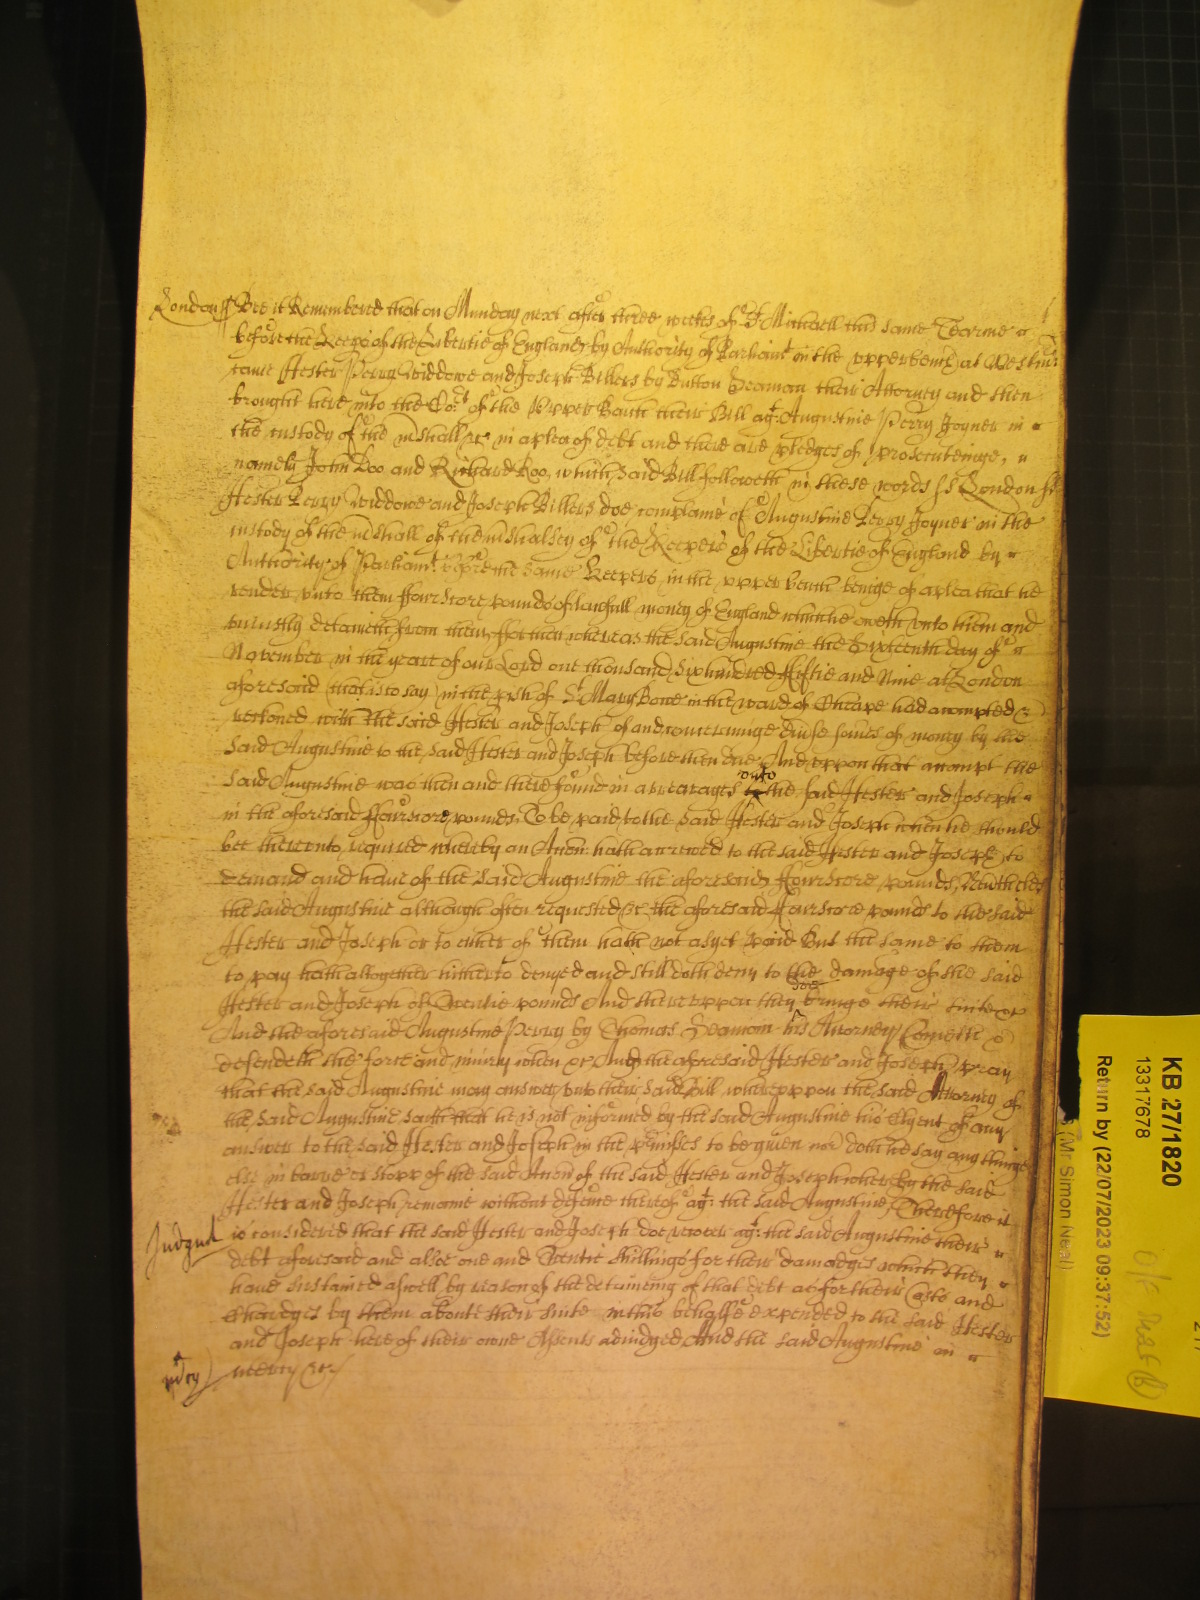 London ss Bee it Remembred that on Munday next after three weekes of St Michaell this same Tearme
before the Keeps of the Libertie of England by Authority of Parliamt in the upper bench at Westmr
came Hester Perry Widdowe and Joseph Billers by Button Seaman their Attorney and then
brought here into the Cort of the Upper Banch their Bill agt Augustine Perry Joyner in
the custody of the mshall &c in a plea of debt and there are pledges of prosecuteinge,
namely John Doo and Richard Roo, which said Bill followeth in these words ss London ss
Hester Perry Widdowe and Joseph Billers doe complaine of Augustine Perry Joyner in the
custody of the mshall of the mshalsey of the Keepers of the Libertie of England by
Authority of Parliamt before the same Keepers in the upper banch beinge of a plea that he
render unto them ffourscore pounds of lawfull money of England which he oweth unto them and
uniustly detaineth from them, ffor that whereas the said Augustine the Sixteenth day of
November in the yeare of our Lord one thousand Sixhundred ffiftie and Nine at London
aforesaid that is to say in the pish of St Mary Bowe in the ward of Cheape had accompted &
reckoned with the said Hester and Joseph of and concerninge divse somes of money by the
said Augustine to the said Hester and Joseph before then due And uppon that accompt the
said Augustine was then and there found in arrerages unto the said Hester and Joseph
in the aforesaid ffourscore pounds To be paid to the said Hester and Joseph when he should
bee thereunto required whereby an Accon hath accrewed to the said Hester and Joseph to
demand and have of the said Augustine the aforesaid ffourscore pounds, Neuthelesse
the said Augustine although often requested &c the aforesaid ffourscore pounds to the said
Hester and Joseph or to either of them hath not as yet paid But the same to them
to pay hath altogether hitherto denyed and still doth deny to the damage of the said
Hester and Joseph of Twentie pounds And thereuppon they doe bringe their suite &c
And the aforesaid Augustine Perry by Thomas Seamom his Attorney Cometh &
defendeth the force and iniury when &c And the aforesaid Hester and Joseph pray
that the said Augustine may answer unto their said Bill whereuppon the said Attorney of
the said Augustine saith that he is not informed by the said Augustine his Clyent of any
answer to the said Hester and Joseph in the pmisses to be given nor doth he say any thinge
else in barre or stopp of the said Accon of the said Hester and Joseph wherby the said
Hester and Joseph remaine without defence thereof agt the said Augustine, Therefore it
Judgmt is considered that the said Hester and Joseph doe recover agt the said Augustine their
debt aforesaid and alsoe one and Twentie shillings for their damadges which they
have sustained aswell by reason of the deteineing of that debt as for their Costs and
Chardges by them aboute their suite in this behalfe expended to the said Hester
and Joseph here of their owne Assents adiudged And the said Augustine in
mercy &c
KB 27/1820
13317678
Return by (22/07/2023 09:37:52)
(Mr Simon Neal)